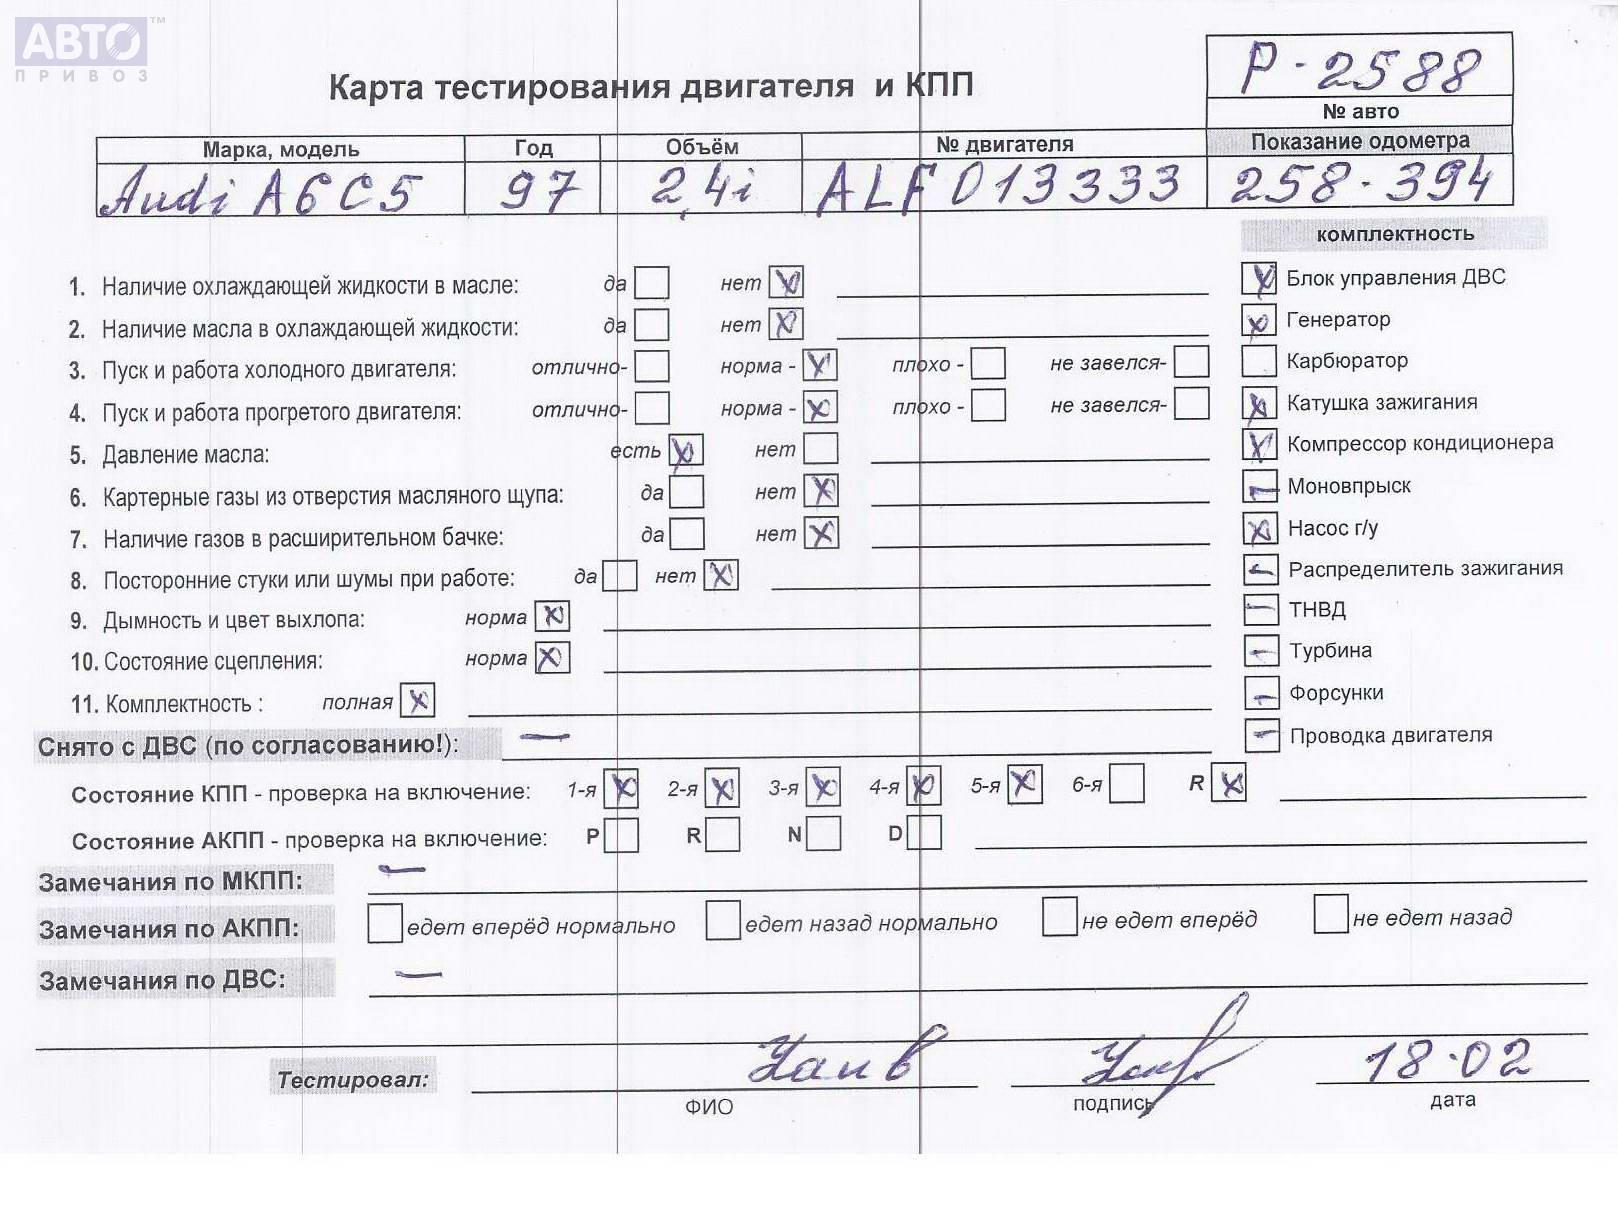 АВТО™
ПРИВОЗ
Карта тестирования двигателя и КПП
P-2588
№ авто
Марка, модель Год Объём № двигателя Показание одометра
Audi A6C5 97 2,4i ALF 013333 258-394
комплектность
1. Наличие охлаждающей жидкости в масле: да нет X
2. Наличие масла в охлаждающей жидкости: да нет X
3. Пуск и работа холодного двигателя: отлично- норма - X плохо - не завелся-
4. Пуск и работа прогретого двигателя: отлично- норма - X плохо - не завелся-
5. Давление масла: есть X нет
6. Картерные газы из отверстия масляного щупа: да нет X
7. Наличие газов в расширительном бачке: да нет X
8. Посторонние стуки или шумы при работе: да нет X
9. Дымность и цвет выхлопа: норма X
10. Состояние сцепления: норма X
11. Комплектность : полная X
X Блок управления ДВС
X Генератор
Карбюратор
X Катушка зажигания
X Компрессор кондиционера
– Моновпрыск
X Насос г/у
– Распределитель зажигания
– ТНВД
– Турбина
– Форсунки
– Проводка двигателя
Снято с ДВС (по согласованию!): —
Состояние КПП - проверка на включение: 1-я X 2-я X 3-я X 4-я X 5-я X 6-я R X
Состояние АКПП - проверка на включение: P R N D
Замечания по МКПП: —
Замечания по АКПП: едет вперёд нормально едет назад нормально не едет вперёд не едет назад
Замечания по ДВС: —
Тестировал: 18-02
ФИО подпись дата